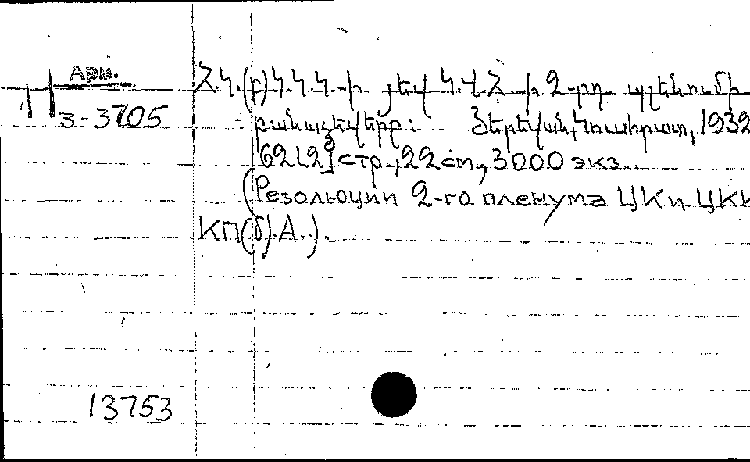 Арм.
з-3705
Հ.Կ.(բ)Կ.Կ.Կ-ի յեվ Կ.Վ.Հ-ի 2-րդ պլենումի
բանաձեվերը: Յերեվան, Կուսհրատ, 1932
62[2] стр., 22 см, 3000 экз.
(Резолюции 2-го пленума ЦК и ЦКК
КП(б).А.).
13753